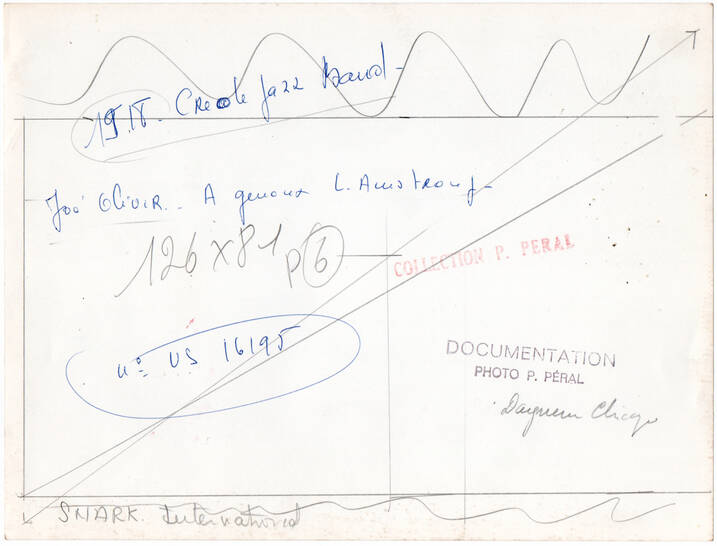 1918. Creole Jazz Band -
Joé OliviR - A genoux L. Amstrong -
126 x 81
P 6
COLLECTION P. PERAL
n° US 16195
DOCUMENTATION
PHOTO P. PÉRAL
Daguerre Chicago
SNARK. International